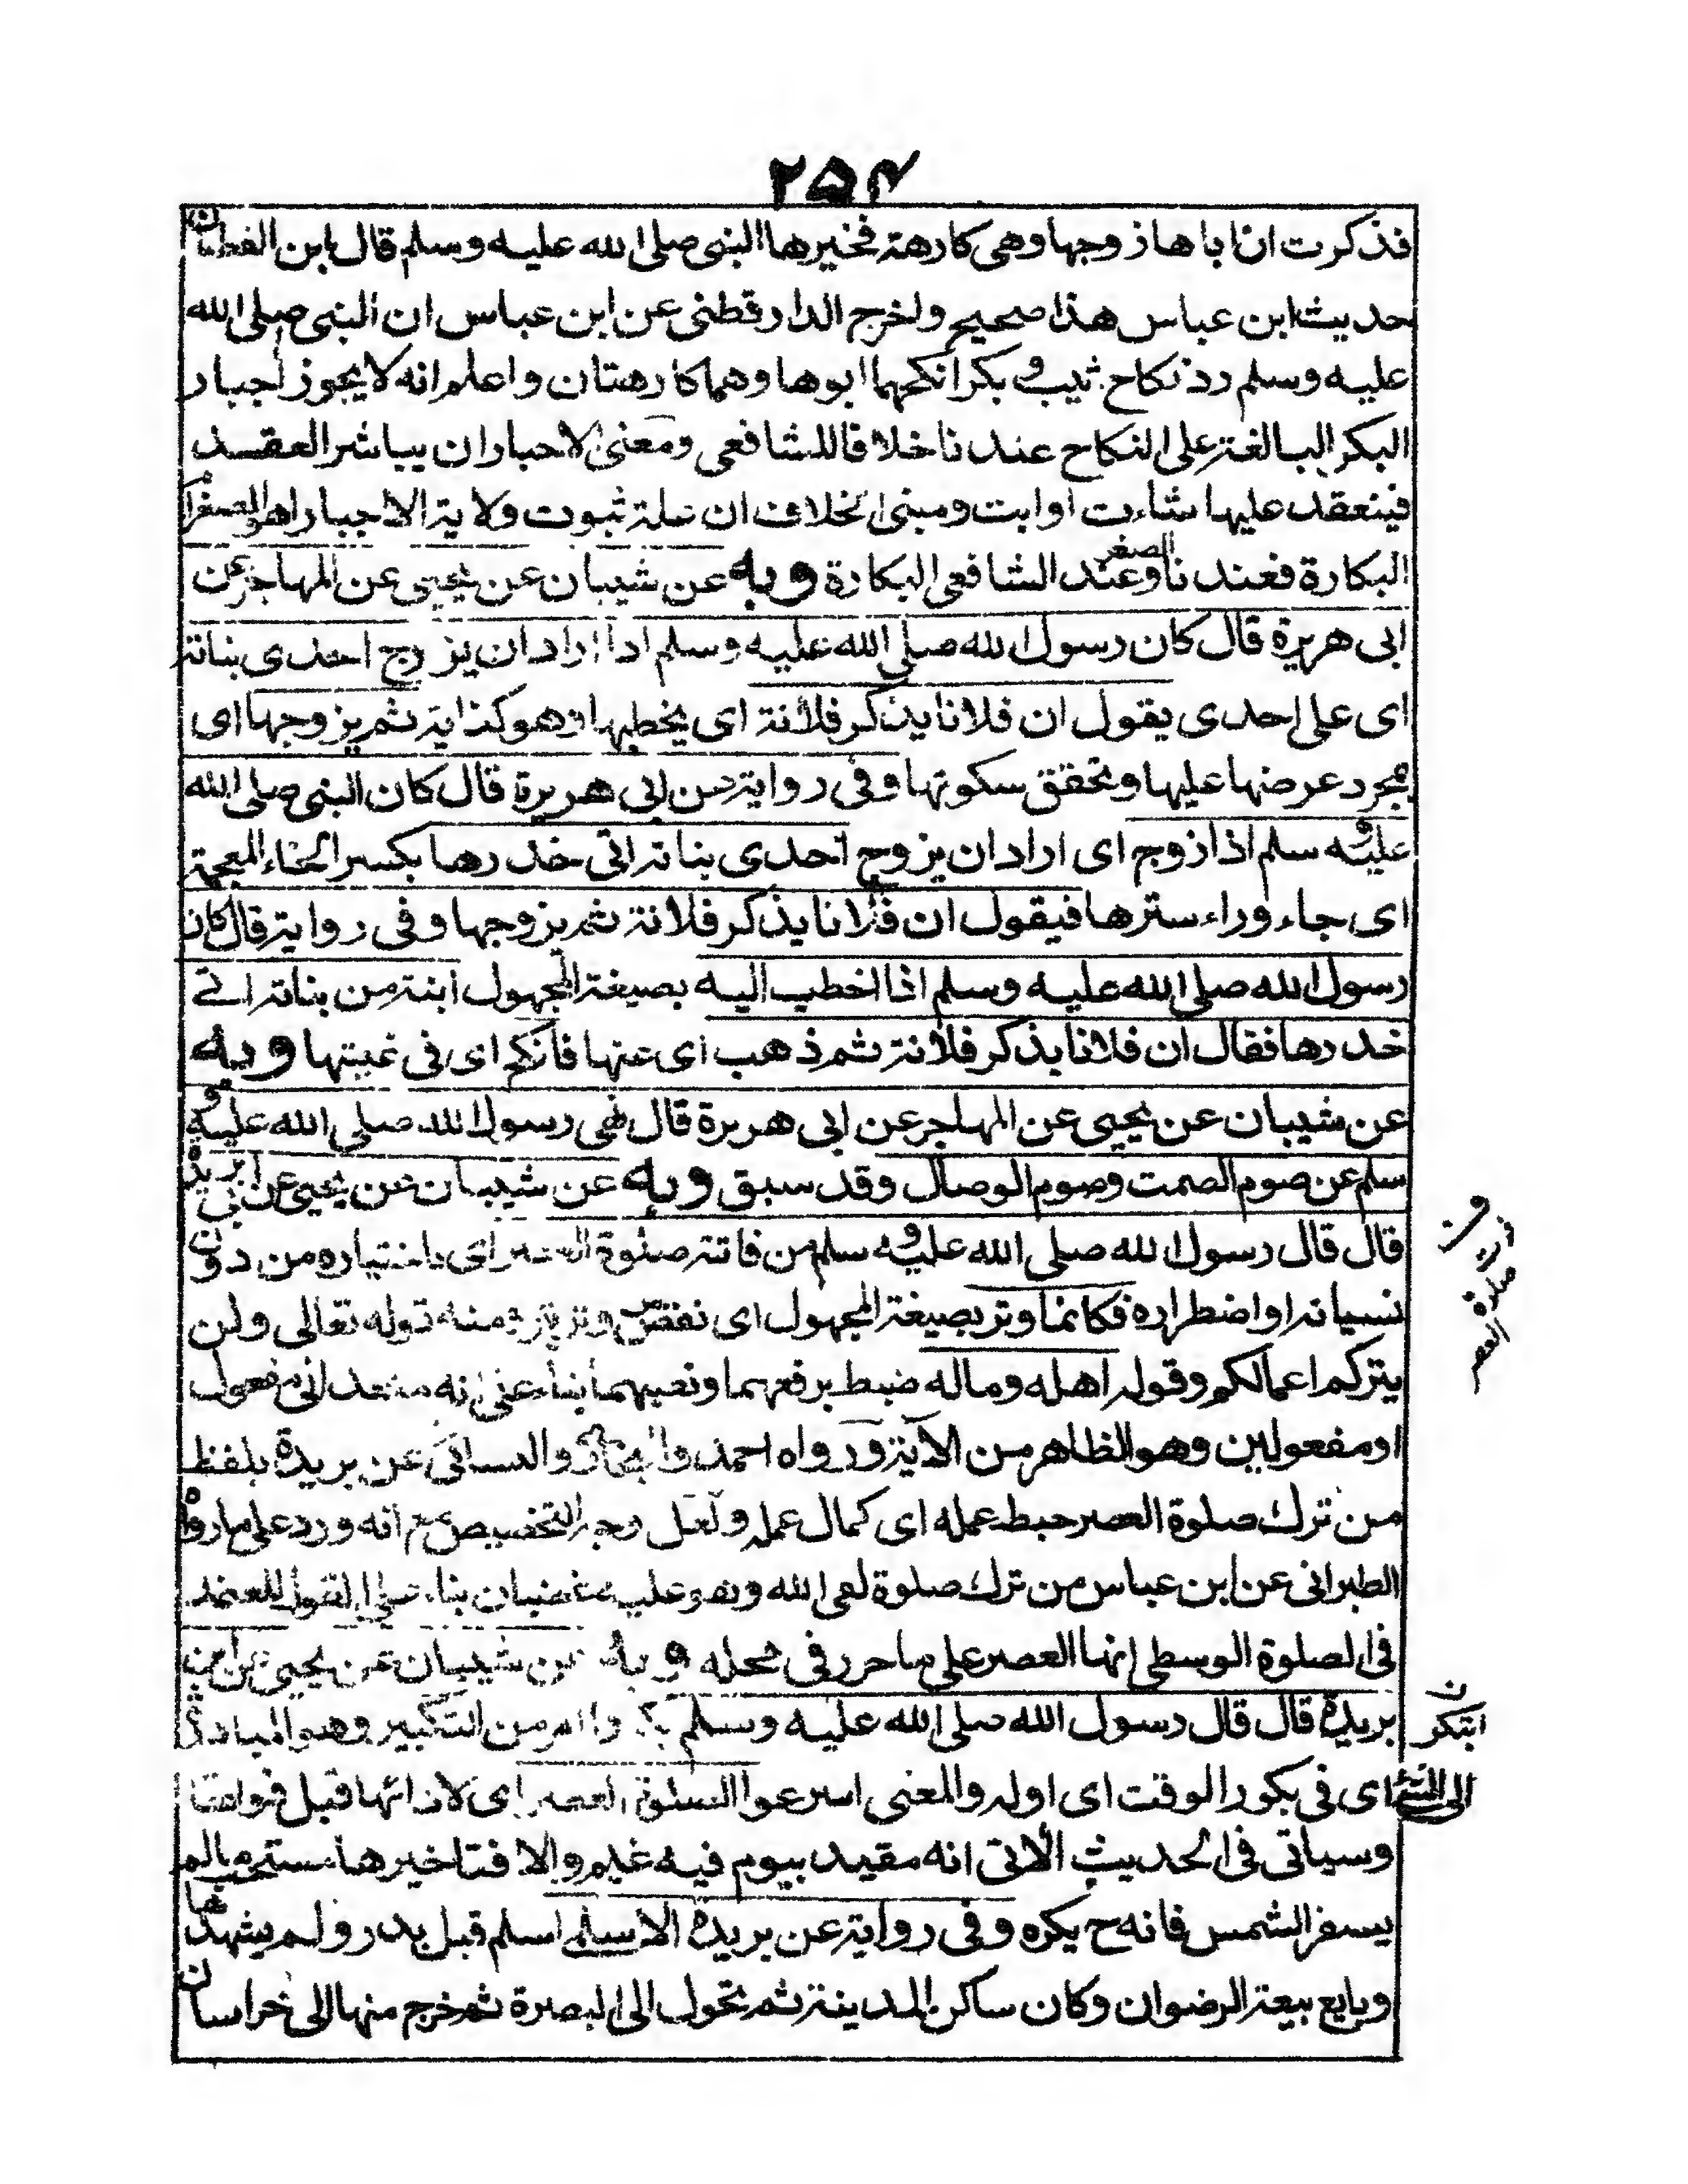 ۲۵۴
فذكرت ان اباها زوجها وهى كارهة فخيرها النبى صلى الله عليه وسلم قال ابن القطان
حديث ابن عباس هذا صحيح واخرج الدارقطنى عن ابن عباس ان النبى صلى الله
عليه وسلم رد نكاح ثيب و بكر انكحهما ابوها وهما كارهتان واعلم انه لا يجوز اجبار
البكر البالغة على النكاح عندنا خلافا للشافعى ومعنى الاجبار ان يباشر العقد
فينعقد عليها شاءت او ابت ومبنى الخلاف ان علة ثبوت ولاية الاجبار اهو الصغر ام
البكارة فعندنا الصغر وعند الشافعى البكارة وبه عن شيبان عن يحيى عن المهاجر عن
ابى هريرة قال كان رسول الله صلى الله عليه وسلم اذا اراد ان يزوج احدى بناته
اى على احدى يقول ان فلانا يذكر فلانة اى يخطبها او هو كناية ثم يزوجها اى
بمجرد عرضها عليها وتحقق سكوتها وفى رواية عن ابى هريرة قال كان النبى صلى الله
عليه و سلم اذا زوج اى اراد ان يزوج احدى بناته اتى خدرها بكسر الخاء المعجمة
اى جاء وراء سترها فيقول ان فلانا يذكر فلانة ثم يزوجها وفى رواية قال كان
رسول الله صلى الله عليه وسلم اذا اخطب اليه بصيغة المجهول ابنة من بناته اتى
خدرها فقال ان فلانا يذكر فلانة ثم ذهب اى عنها فانكح اى فى غيبتها وبه
عن شيبان عن يحيى عن المهاجر عن ابى هريرة قال نهى رسول الله صلى الله عليه و
سلم عن صوم الصمت وصوم الوصال وقد سبق وبه عن شيبان عن يحيى عن ابى بريدة
قال قال رسول الله صلى الله عليه و سلم من فاتته صلوة العصر اى باختياره من دون
نسيانه او اضطراره فكانما وتر بصيغة المجهول اى نقص ومنه قوله تعالى ولن
يتركم اعمالكم وقوله اهله وماله ضبط برفعهما ونصبهما بناء على انه متعد الى مفعول
او مفعولين وهو الظاهر من الآية ورواه احمد والبخارى والنسائى عن بريدة بلفظ
من ترك صلوة العصر حبط عمله اى كمال عمله ولعل وجه التخصيص مع انه ورد على ما رواه
الطبرانى عن ابن عباس من ترك صلوة لقى الله وهو عليه غضبان بناء على القول المعتمد
فى الصلوة الوسطى انها العصر على ما حرر فى محله وبه عن شيبان عن يحيى عن ابن
بريدة قال قال رسول الله صلى الله عليه وسلم بكروا امر من التبكير وهو المبادرة
الى الشئ اى فى بكور الوقت اى اوله والمعنى اسرعوا الصلوة العصر اى لادائها قبل فواتها
وسياتى فى الحديث الآتى انه مقيد بيوم فيه غيم والا فتاخيرها مستحب ما لم
يسفر الشمس فانه ح يكره وفى رواية عن بريدة الاسلمى اسلم قبل بدر ولم يشهدها
وبايع بيعة الرضوان وكان ساكن المدينة ثم تحول الى البصرة ثم خرج منها الى خراسان
صلوة العصر
ن
ابتكر